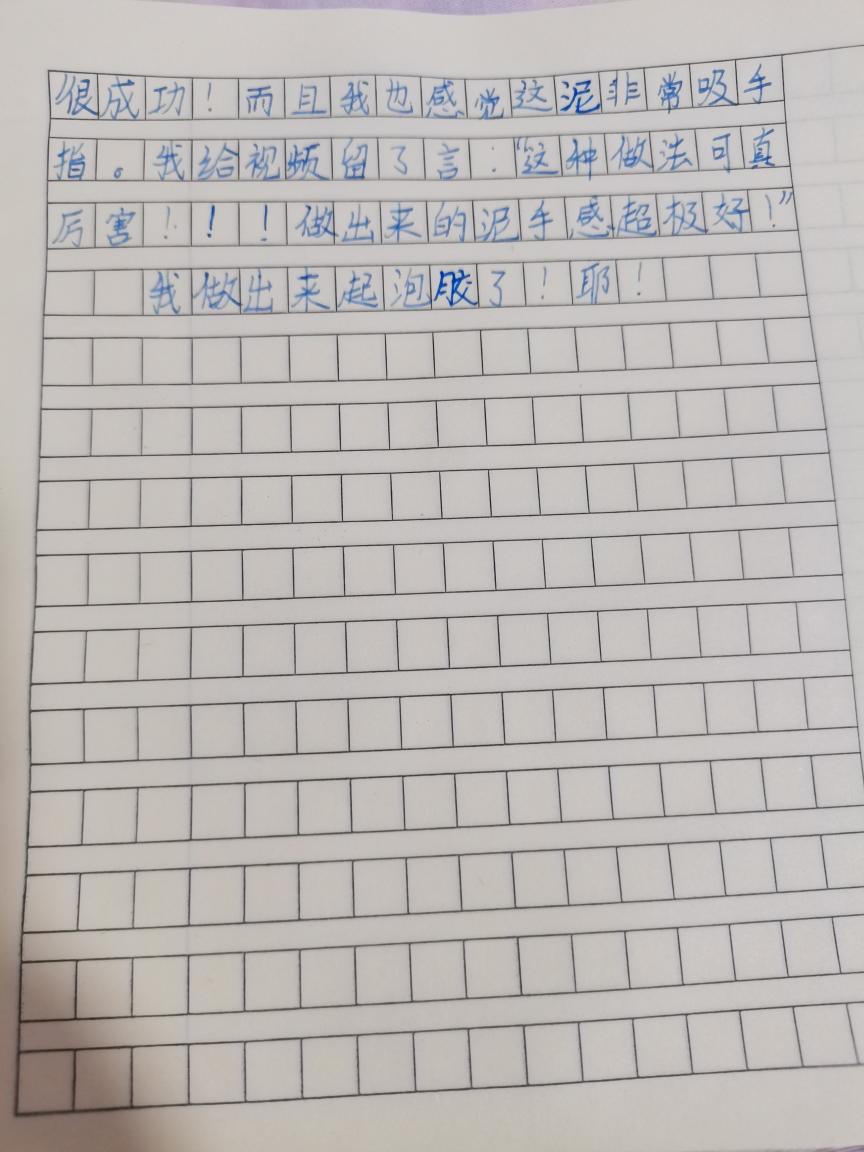 很成功！而且我也感觉这泥非常吸手
指。我给视频留了言：“这种做法可真
厉害！！！做出来的泥手感超极好！”
我做出来起泡胶了！耶！